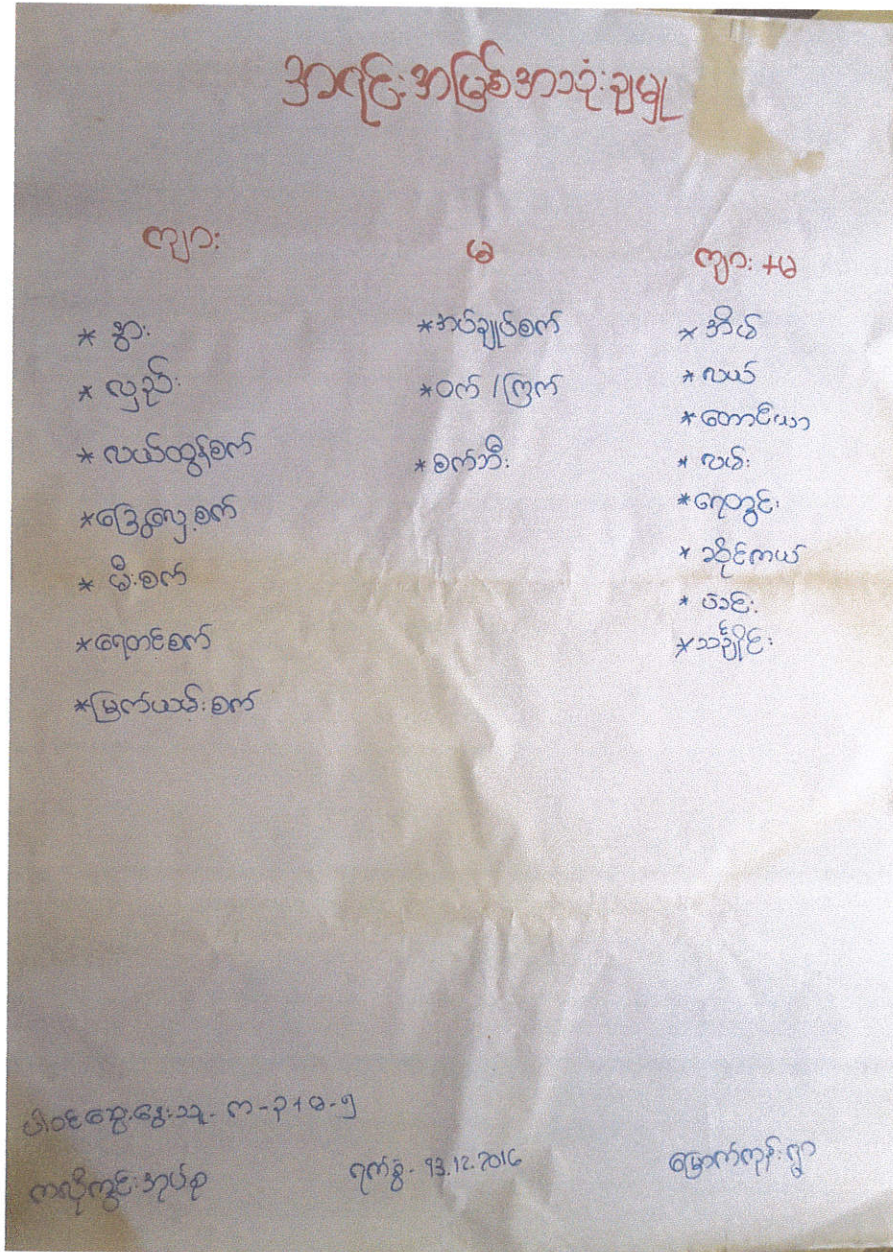 အရင်းအမြစ်အသုံးချမှု
ကျား
မ
ကျား +မ
* နွား
* လှည်း
* လယ်ထွန်စက်
* ခြွေလှေ့စက်
* မီးစက်
* ရေတင်စက်
* မြက်ယမ်းစက်
* အပ်ချုပ်စက်
* ဝက် / ကြက်
* စက်ဘီး
* အိမ်
* လယ်
* တောင်ယာ
* လမ်း
* ရေတွင်း
* ဆိုင်ကယ်
* သင်္ချိုင်း
ပါဝင်ဆွေးနွေးသူ - က - ၃ + မ - ၅
ကလိုကွင်းအုပ်စု
ရက်စွဲ - 13.12.2016
မြောက်ကုန်းရွာ